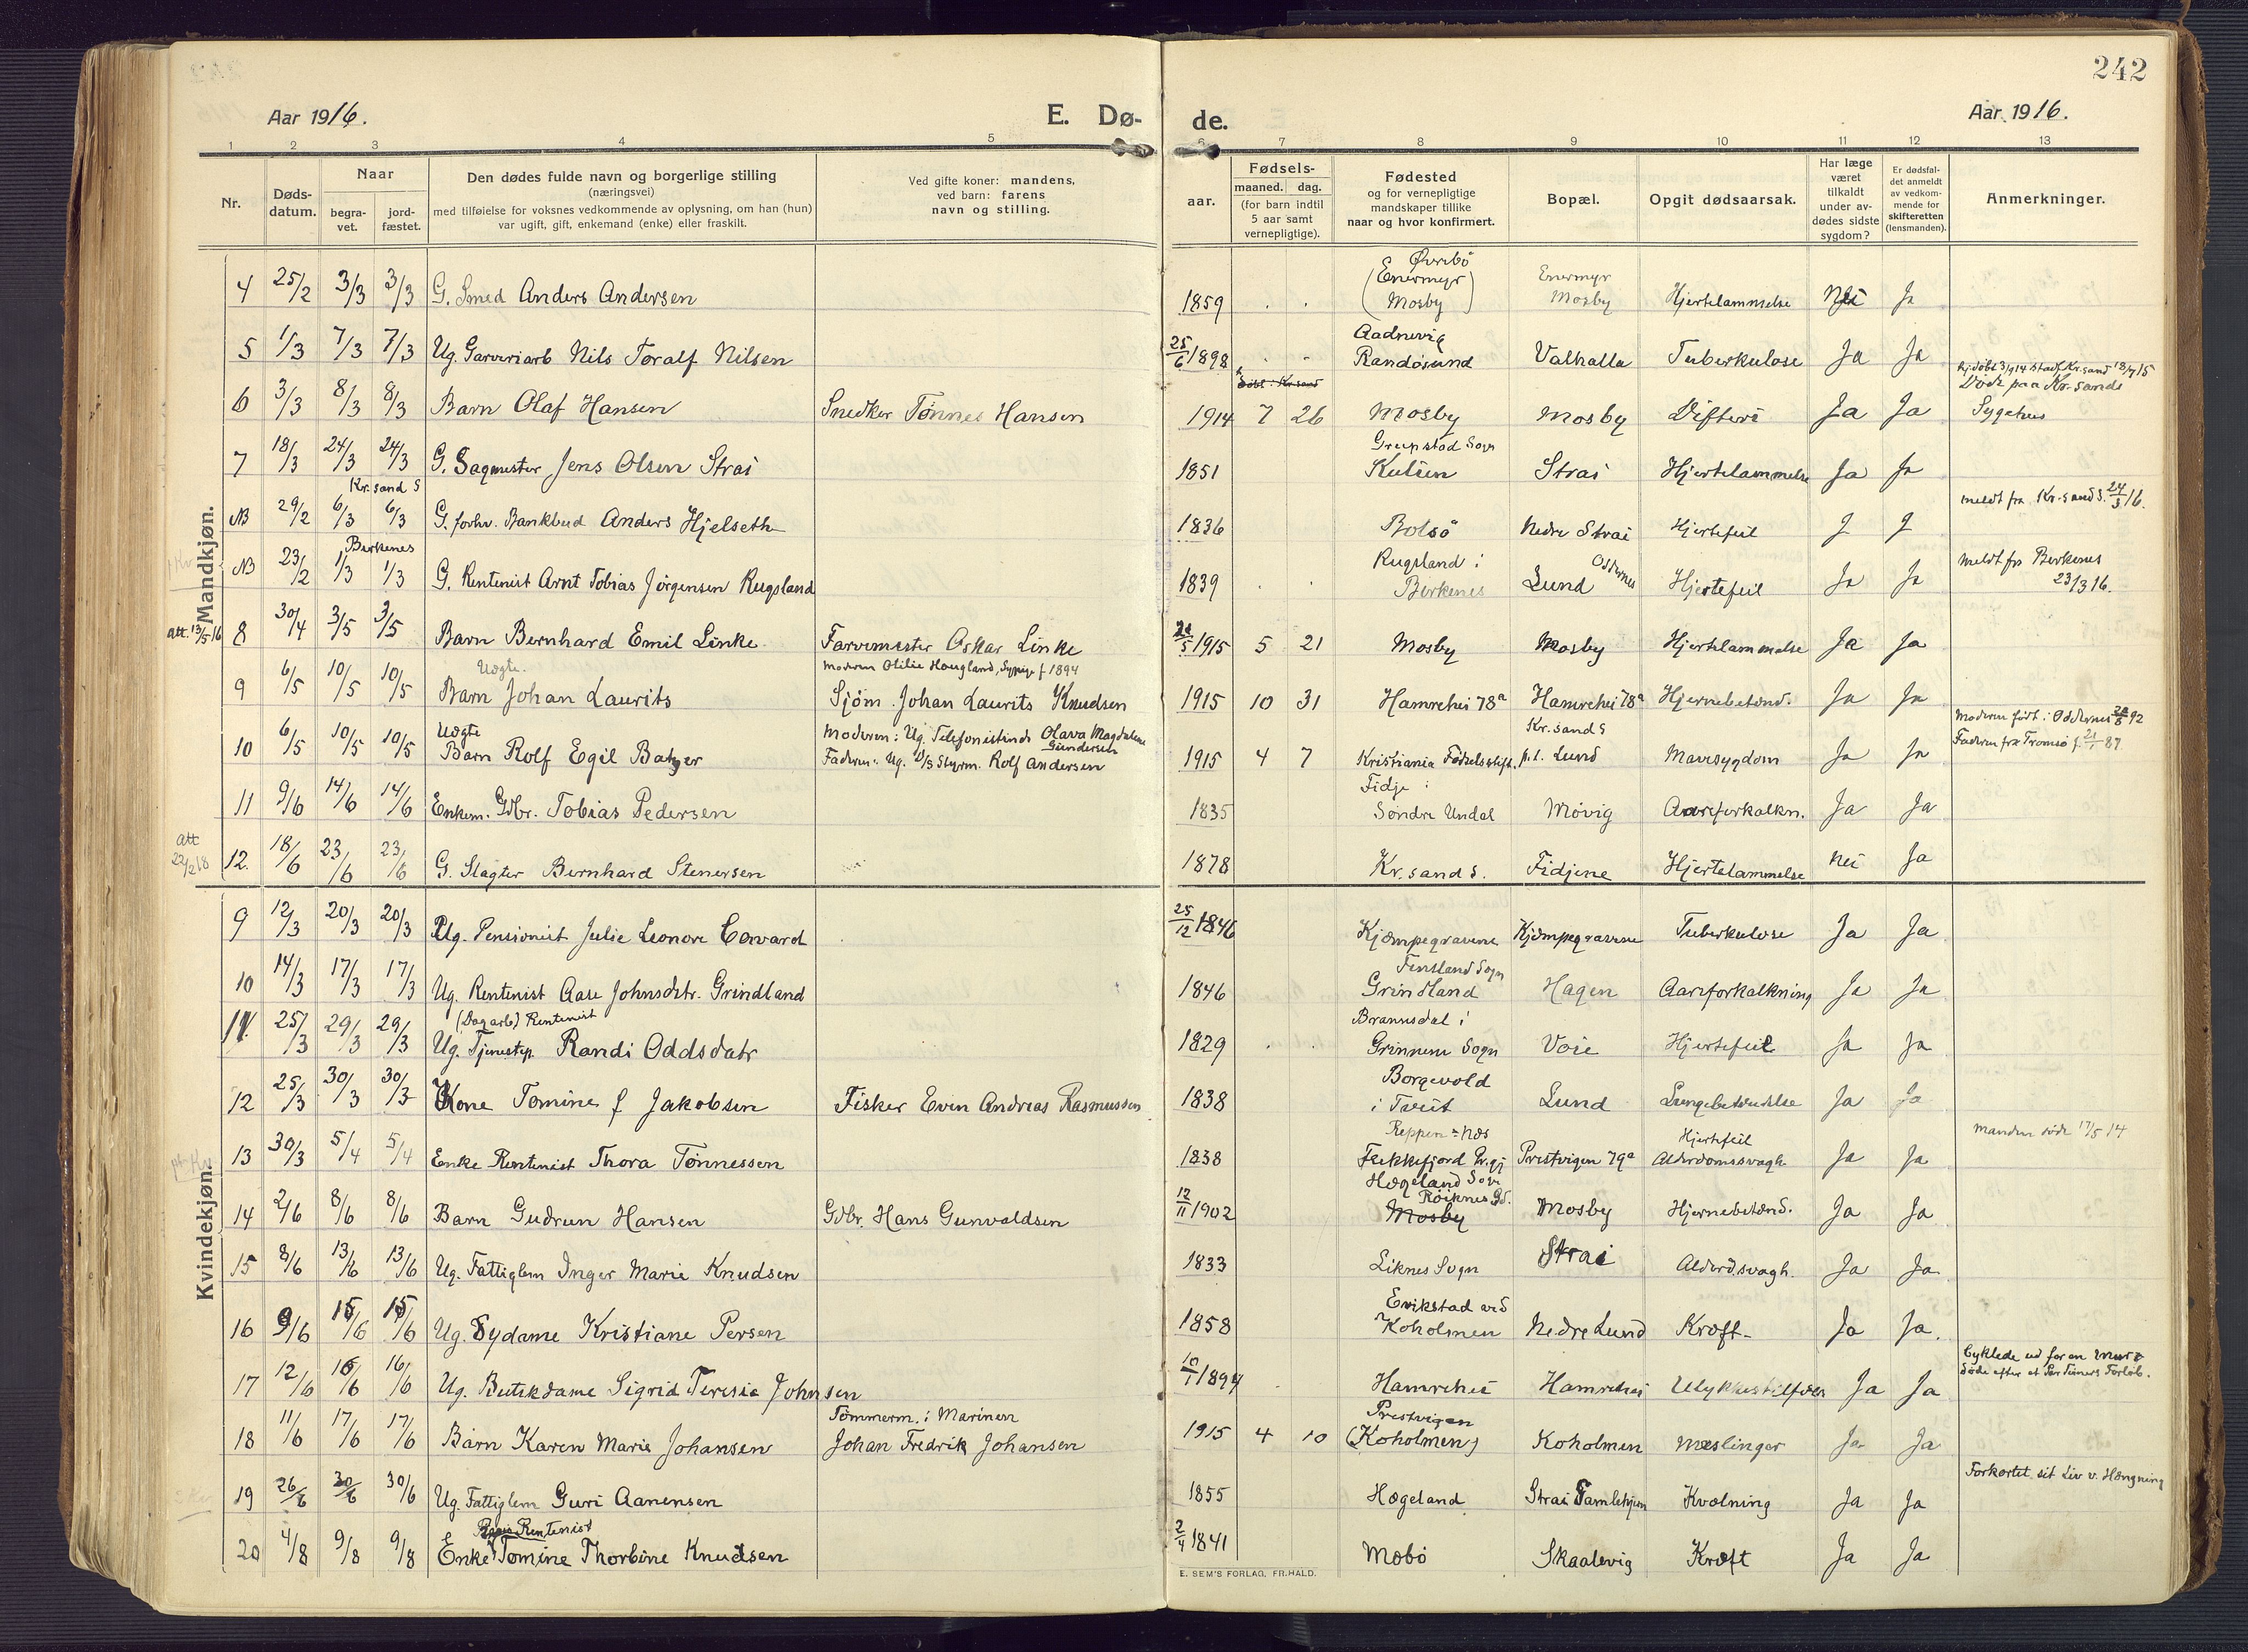 242
Aar 1916.
E. Dø-
de.
Aar 1916.
1 2 3 4 5 6 7 8 9 10 11 12 13
Nr.
Døds-
datum.
Naar
begra-
vet.
jord-
fæstet.
Den dødes fulde navn og borgerlige stilling
(næringsvei)
med tilføielse for voksnes vedkommende av oplysning, om han (hun)
var ugift, gift, enkemand (enke) eller fraskilt.
Ved gifte koner: mandens,
ved barn: farens
navn og stilling.
Fødsels-
aar.
maaned. dag.
(for barn indtil
5 aar samt
vernepligtige).
Fødested
og for vernepligtige
mandskaper tillike
naar og hvor konfirmert.
Bopæl.
Opgit dødsaarsak.
Har læge
været
tilkaldt
under av-
dødes sidste
sygdom?
Er dødsfal-
det anmeldt
av vedkom-
mende for
skifteretten
(lensmanden).
Anmerkninger.
Mandkjøn.
Øvrebö Enermyr
4 25/2 3/3 3/3 G. Smed Anders Andersen 1859 (Enermyr Mosby) Mosby Hjertelammelse Nei Ja
Aadnevig
5 1/3 7/3 7/3 Ug. Garveriarb Nils Toralf Nilsen 25/6 1898 Randösund Valhalla Tuberkulose Ja Ja
Döde paa Kr.sands
6 3/3 8/3 8/3 Barn Olaf Hansen Snedker Tönnes Hansen 1914 7 26 Mosby Mosby Difteri Ja Ja Sygehus
Greipstad Sogn
7 18/3 24/3 24/3 G. Sagmester Jens Olsen Strai 1851 Kulien Strai Hjertelammelse Ja Ja
Kr.sand S meldt fra Kr.sand S. 24/3 16.
NB 29/2 6/3 6/3 G. forhv. Bankbud Anders Hjelseth 1836 Bolsö Nedre Strai Hjertefeil J J
Birkenes Rugsland i Oddernes meldt fra Birkenes
NB 23/2 1/3 1/3 G. Rentenist Arnt Tobias Jörgensen Rugsland 1839 Birkenes Lund Hjertefeil Ja Ja 23/3 16.
Att. 13/5 16 8 30/4 3/5 3/5 Barn Bernhard Emil Linke Farvemester Oskar Linke 21/5 1915 5 21 Mosby Mosby Hjertelammelse Ja Ja
Uegte. Moderen Otilie Hougland, Sypige f. 1894
9 6/5 10/5 10/5 Barn Johan Laurits Sjöm. Johan Laurits Knudsen 1915 10 31 Hamrehei 78a Hamrehei 78a Hjernebetænd. Ja Ja
Uegte Moderen: Ug. Telefonistinde Olava Magdalene Gundersen Kr.sand S Moderen födt i Oddernes 92
10 6/5 10/5 10/5 Barn Rolf Egil Faderen: Ug. D/S Styrm. Rolf Andersen 1915 4 7 Kristiania Födselsstift. p.t. Lund Mavesygdom Ja Ja Faderen fra Tromsö f. 87
Fidje i
11 9/6 14/6 14/6 Enkem. Gdbr. Tobias Pedersen 1835 Söndre Undal Mövig Aareforkalkn. Ja Ja
Att 22/2 18 12. 18/6 23/6 23/6 G. Slagter Bernhard Stenersen 1878 Kr.sand S. Fidjene Hjertelammelse Nei Ja
Kvindekjøn.
9 12/3 20/3 20/3 Ug. Pensionist Julie Leonore Coward 25/12 1846 Kjæmpegravene Kjæmpegravene Tuberkulose Ja Ja
Finsland Sogn
10 14/3 17/3 17/3 Ug. Rentenist Aase Johnsdtr. Grindland 1846 Grindland Hagen Aareforkalkning Ja Ja
(Dagarb) Rentenist
11 25/3 29/3 29/3 Ug. Tjenestep. Randi Oddsdatr 1829 Sogn Voie Hjertefeil Ja Ja
Borgevold
12 25/3 30/3 30/3 Kone Tomine f Jakobsen Fisker Even Andreas Rasmussen 1838 i Tveit Lund Lungebetændelse Ja Ja
Hjertefeil manden död 17/5 14
13 30/3 5/4 5/4 Enke Rentenist Thora Tönnessen 1838 Flekkefjord Pr.gj Prestvigen 79a Alderdomssvagh. Ja Ja
Hægeland Sogn
14 2/6 8/6 8/6 Barn Gudrun Hansen Gdbr. Hans Gunvaldsen 12/11 1902 Mosby Mosby Hjernebetænd. Ja Ja
15 8/6 13/6 13/6 Ug. Fattiglem Inger Marie Knudsen 1833 Liknes Sogn Strai Alderd.svagh. Ja Ja
Evikstad ved
16 9/6 15/6 15/6 Ug. Sydame Kristiane Persen 1858 Koholmen Nedre Lund Kræft Ja Ja.
Cyklede ud for en mur &
döde efter et Par Timers Forlöb.
17 12/6 16/6 16/6 Ug. Butikdame Sigrid Teresie Johnsen 10/1 1894 Hamrehei Hamrehei Ulykkestilfælde Ja Ja
Tömmerm. i Marinen Prestvigen
18 11/6 17/6 17/6 Barn Karen Marie Johansen Johan Fredrik Johansen 1915 4 10 (Koholmen) Koholmen Mæslinger Ja Ja
Forkortet sit Liv v. Hængning
19 26/6 30/6 30/6 Ug. Fattiglem Guri Aanensen 1855 Hægeland Strai Gamlehjem Kvælning Ja Ja
Rentenist
20 4/8 9/8 9/8 Enke Tomine Thorbine Knudsen 2/4 1841 Mæbö Skaalevig Kræft Ja Ja
E. SEM'S FORLAG, FR.HALD.